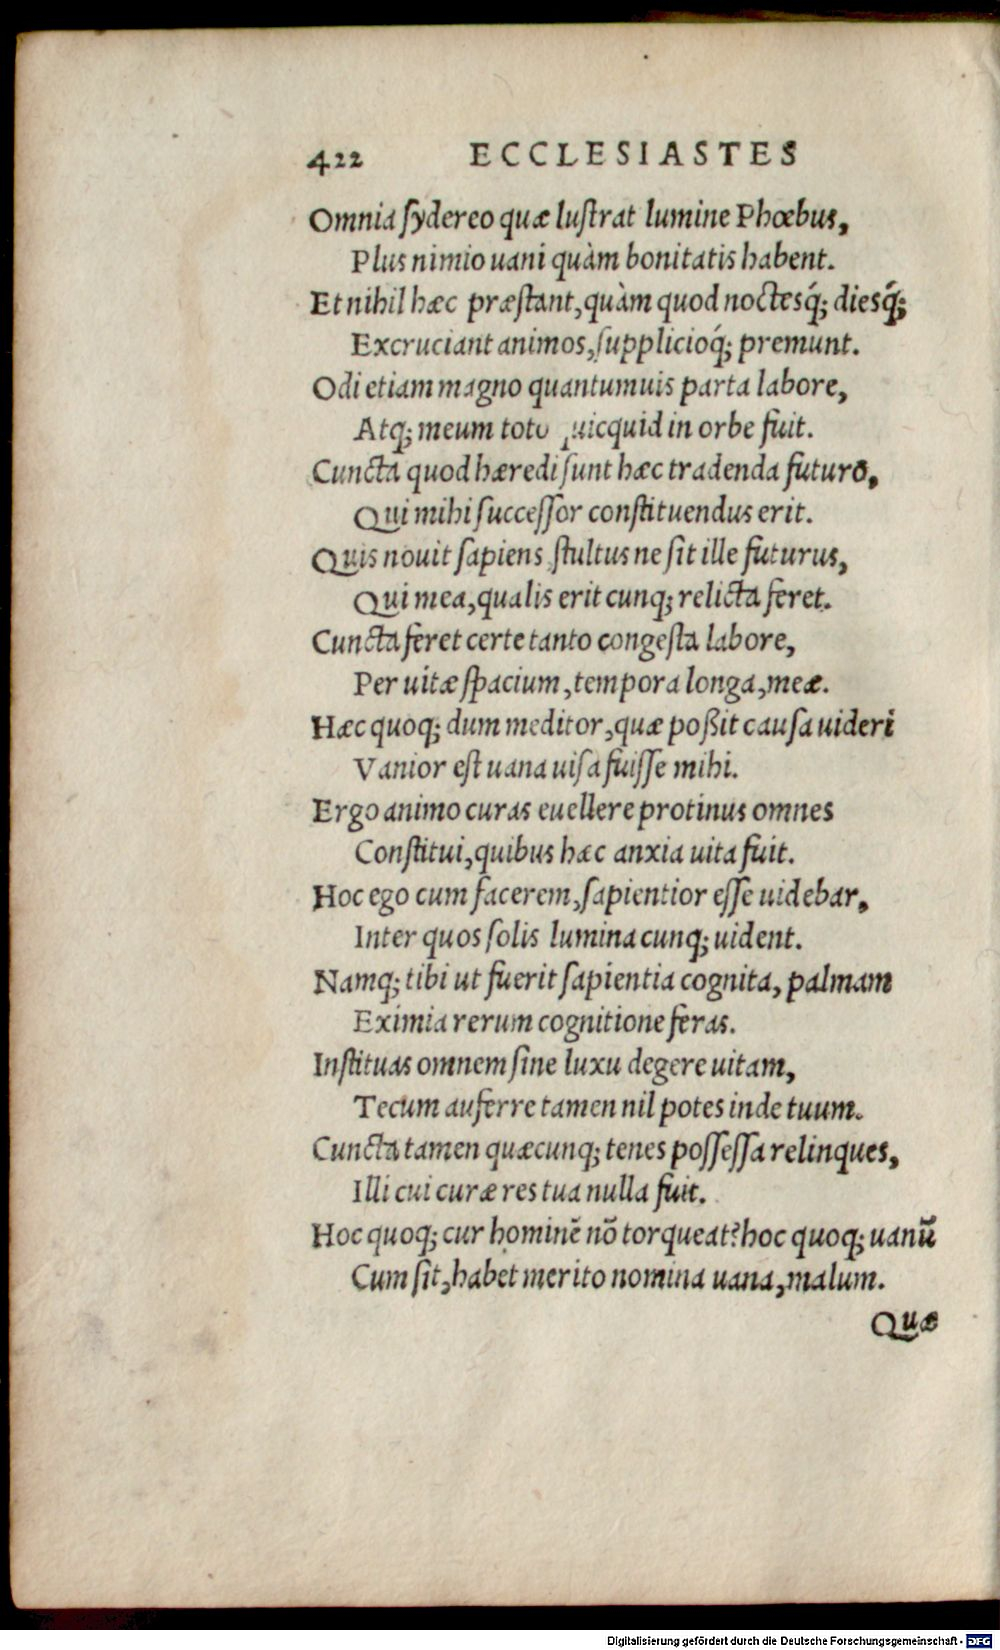 422 ECCLESIASTES
Omnia ſydereo quæ luſtrat lumine Phœbus,
Plus nimio uani quàm bonitatis habent.
Et nihil hæc præſtant, quàm quod noctesq́; diesq́;
Excruciant animos, ſupplicioq́; premunt.
Odi etiam magno quantumuis parta labore,
Atq; meum toto quicquid in orbe fuit.
Cuncta quod hæredi ſunt hæc tradenda futuro,
Qui mihi ſucceſſor conſtituendus erit.
Quis nouit ſapiens ſtultus ne ſit ille futurus,
Qui mea, qualis erit cunq; relicta feret.
Cuncta feret certe tanto congeſta labore,
Per uitæ ſpacium, tempora longa, meæ.
Hæc quoq; dum meditor, quæ poßit cauſa uideri
Vanior eſt uana uiſa fuiſſe mihi.
Ergo animo curas euellere protinus omnes
Conſtitui, quibus hæc anxia uita fuit.
Hoc ego cum facerem, ſapientior eſſe uidebar,
Inter quos ſolis lumina cunq; uident.
Namq; tibi ut fuerit ſapientia cognita, palmam
Eximia rerum cognitione feras.
Inſtituas omnem ſine luxu degere uitam,
Tecum auferre tamen nil potes inde tuum.
Cuncta tamen quæcunq; tenes poſſeſſa relinques,
Illi cui curæ res tua nulla fuit.
Hoc quoq; cur hominẽ nõ torqueat? hoc quoq; uanũ
Cum ſit, habet merito nomina uana, malum.
Quæ
Digitalisierung gefördert durch die Deutsche Forschungsgemeinschaft - DFG